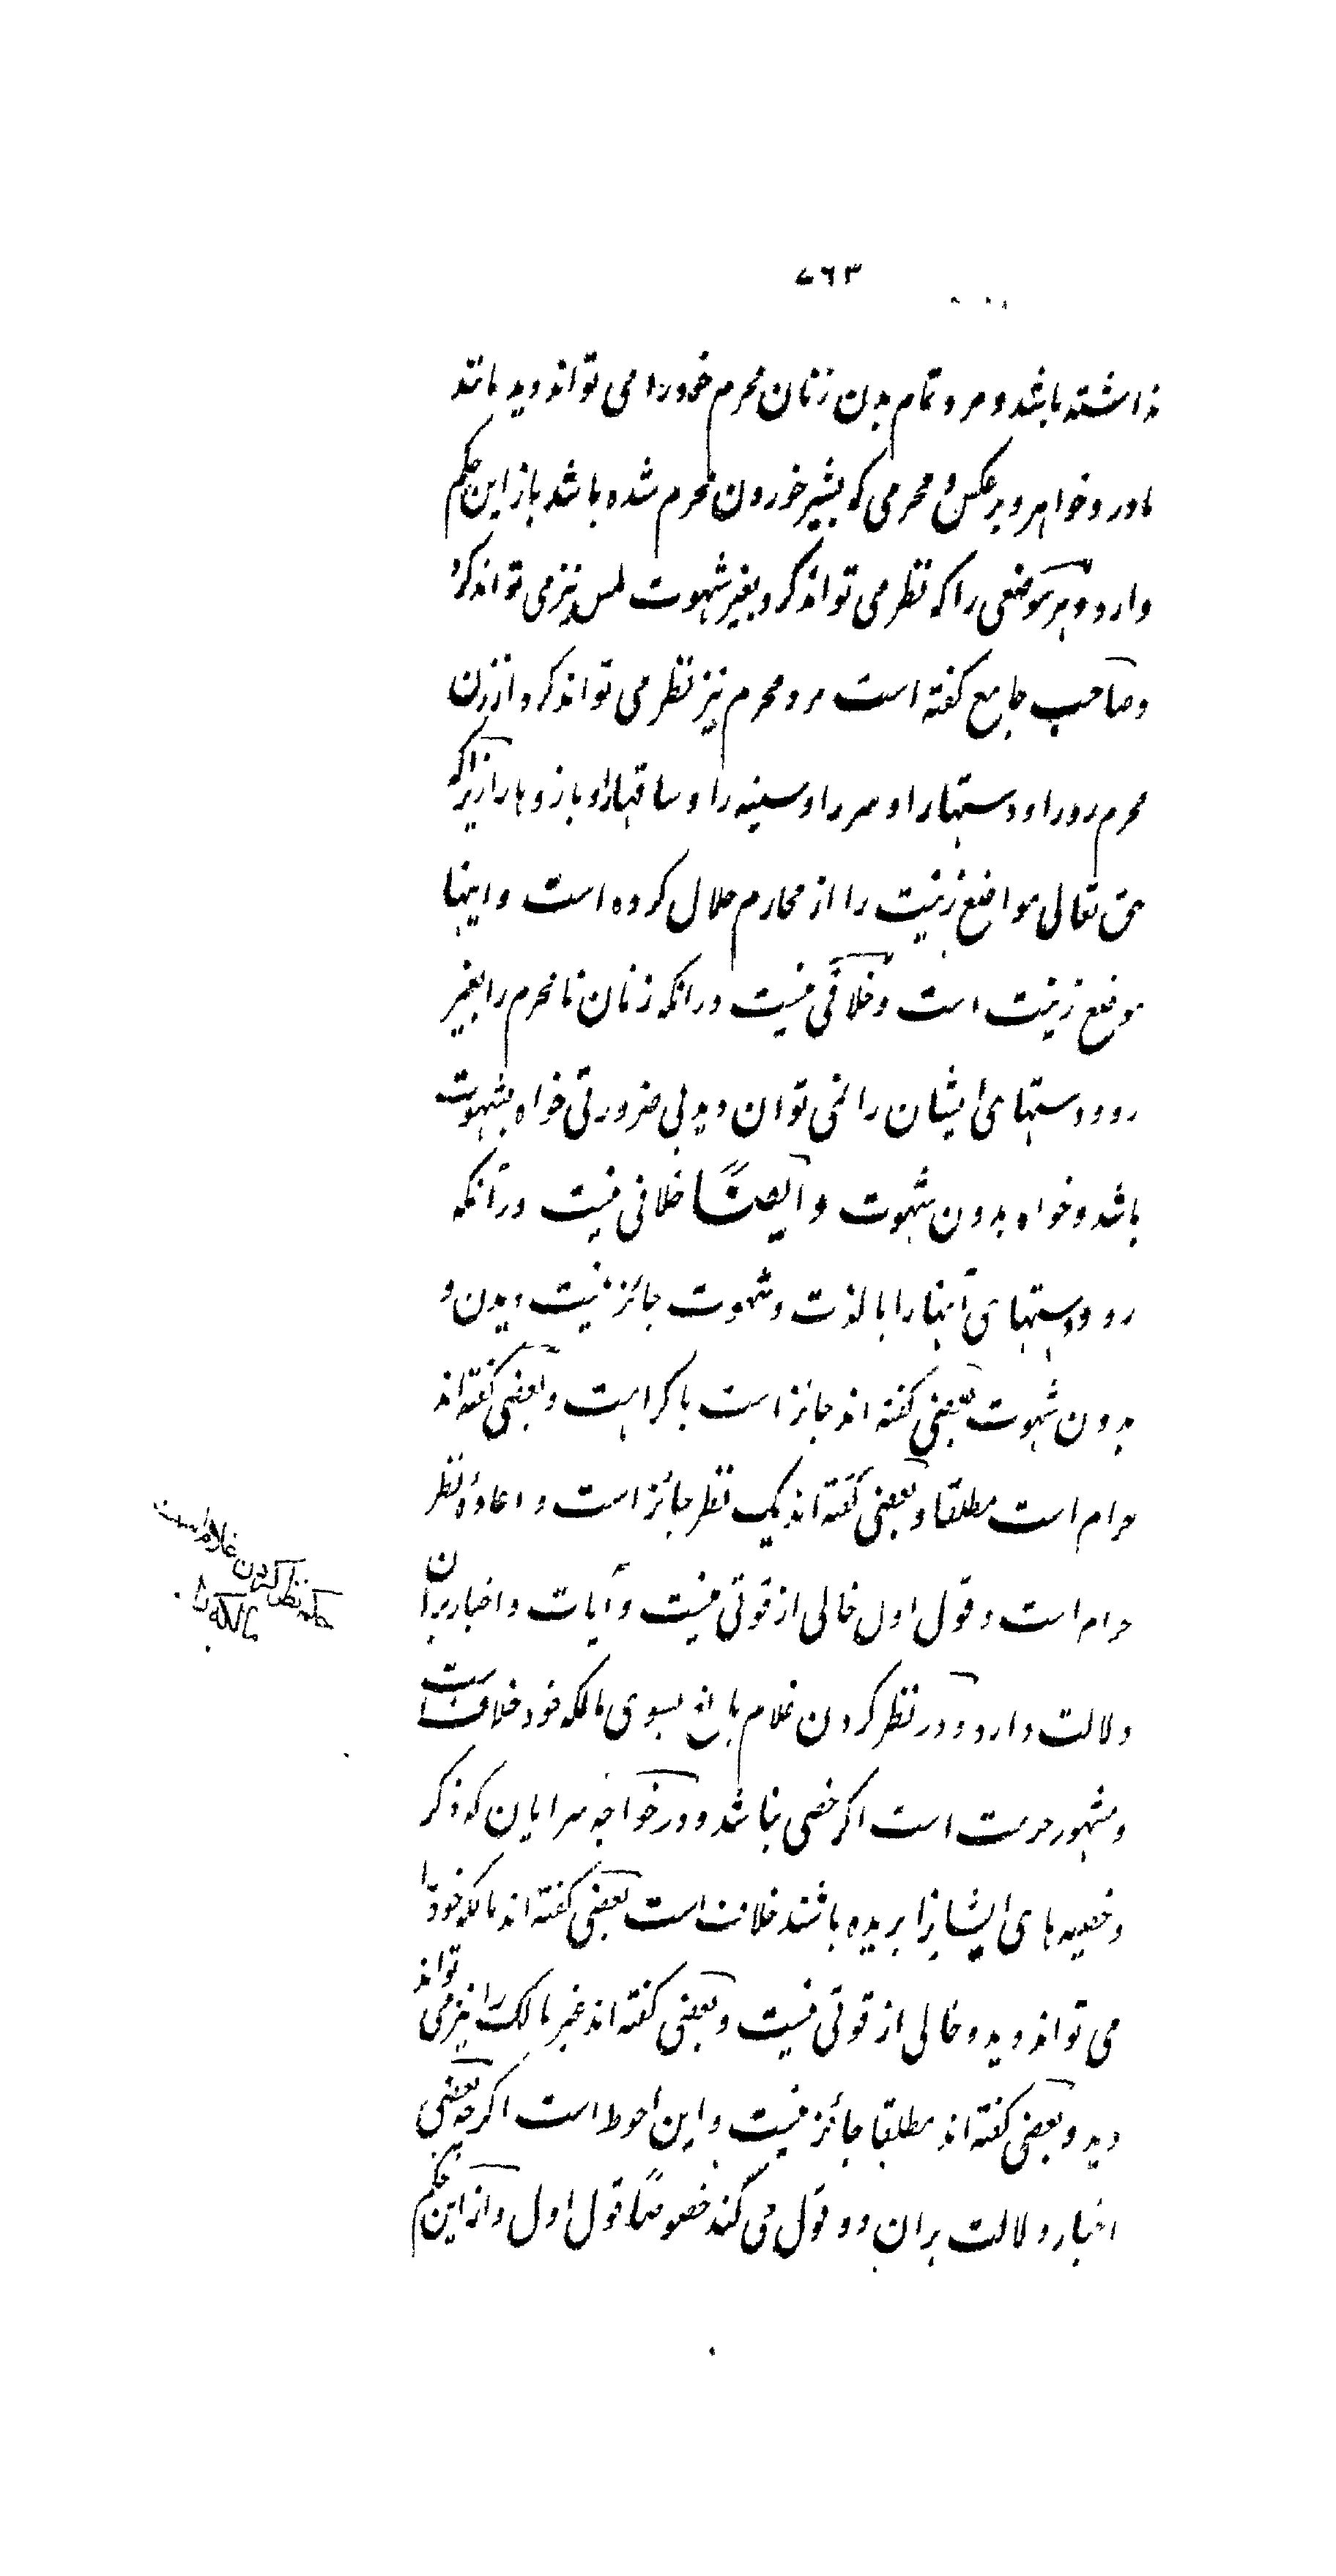 ۷۶۳
نداشته باشد و مرد تمام بدن زنان محرم خود را می تواند دید مانند
مادر و خواهر و برعکس و محرمی که بشیر خوردن محرم شده باشد باز این حکم
دارد و هر موضعی را که نظر می تواند کرد بغیر شهوت لمس نیز می تواند کرد
و صاحب جامع کفته است مرد محرم نیز نظر می تواند کرد از زن
محرم رو را و دستها را و سر را و سینه را و ساقها را و بازوها را زیرا که
حق تعالی مواضع زینت را از محارم حلال کرده است و اینها
موضع زینت است و خلافی نیست در انکه زنان نامحرم را بغیر
رو و دستهای ایشان را نمی توان دید بی ضرورتی خواه بشهوت
باشد و خواه بدون شهوت و ایضًا خلافی نیست در آنکه
رو و دستهای آنها را با لذت و شهوت جائز نیست دیدن و
بدون شهوت بعضی کفته اند جائز است با کراهت و بعضی کفته اند
حرام است مطلقا و بعضی کفته اند یک نظر جائز است و اعادهٔ نظر
حرام است و قول اول خالی از قوتی نیست و آیات و اخبار بران
دلالت دارد و در نظر کردن غلام بالغ بسوی مالکه خود خلاف است
و مشهور حرمت است اکر خصی نباشد و در خواجه سرایان که ذکر
و خصیه های ایشانرا بریده باشند خلاف است بعضی کفته اند مالکه خود را
می تواند دید و خالی از قوتی نیست و بعضی کفته اند غیر مالک را نیز می تواند
دید و بعضی کفته اند مطلقا جائز نیست و این احوط است اکرچه بعضی
اخبار دلالت بران دو قول می کند خصوصًا قول اول و از این حکم
حکم نظر کردن غلام است
بمالکه